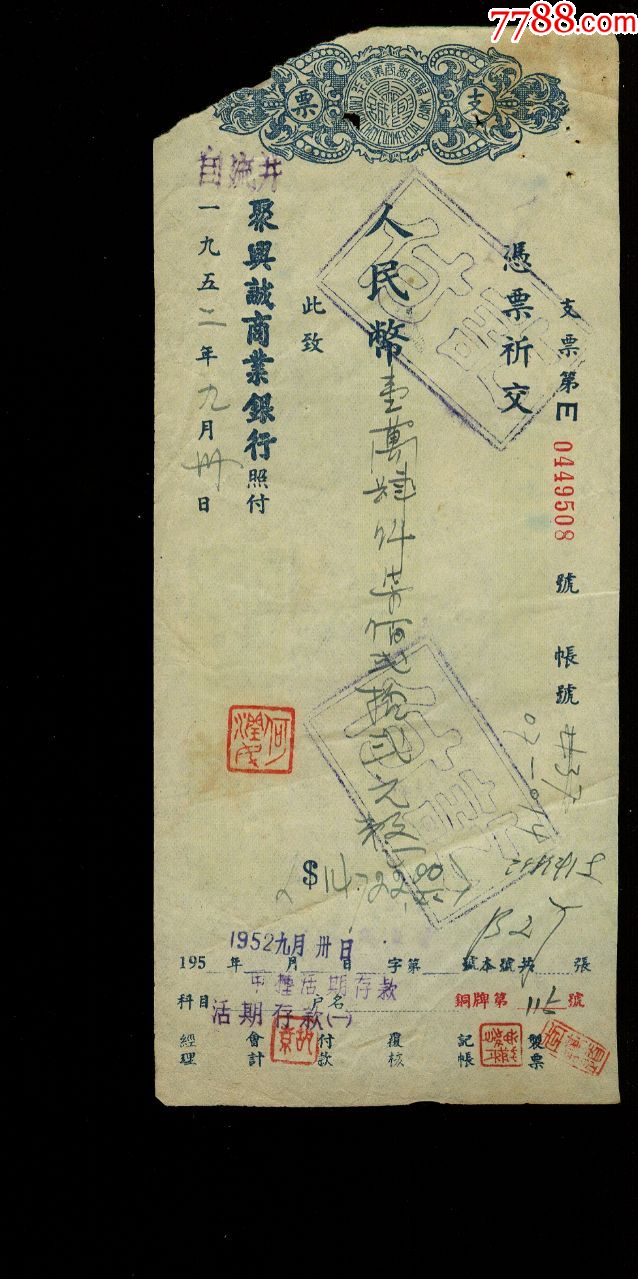 7788.com
支票
支票第 0449508 號 帳號
憑票祈交
人民幣壹萬肆仟柒佰弍拾弍元
$14,722.00
此致
聚興誠商業銀行照付
自流井
一九五二年九月卅日
何潤民
1952九月卅日
195 年 月 日 字第 號本號共 張
甲種活期存款
科目 戶名 銅牌第 115 號
活期存款(一)
經理 會計 付款 覆核 記帳 製票